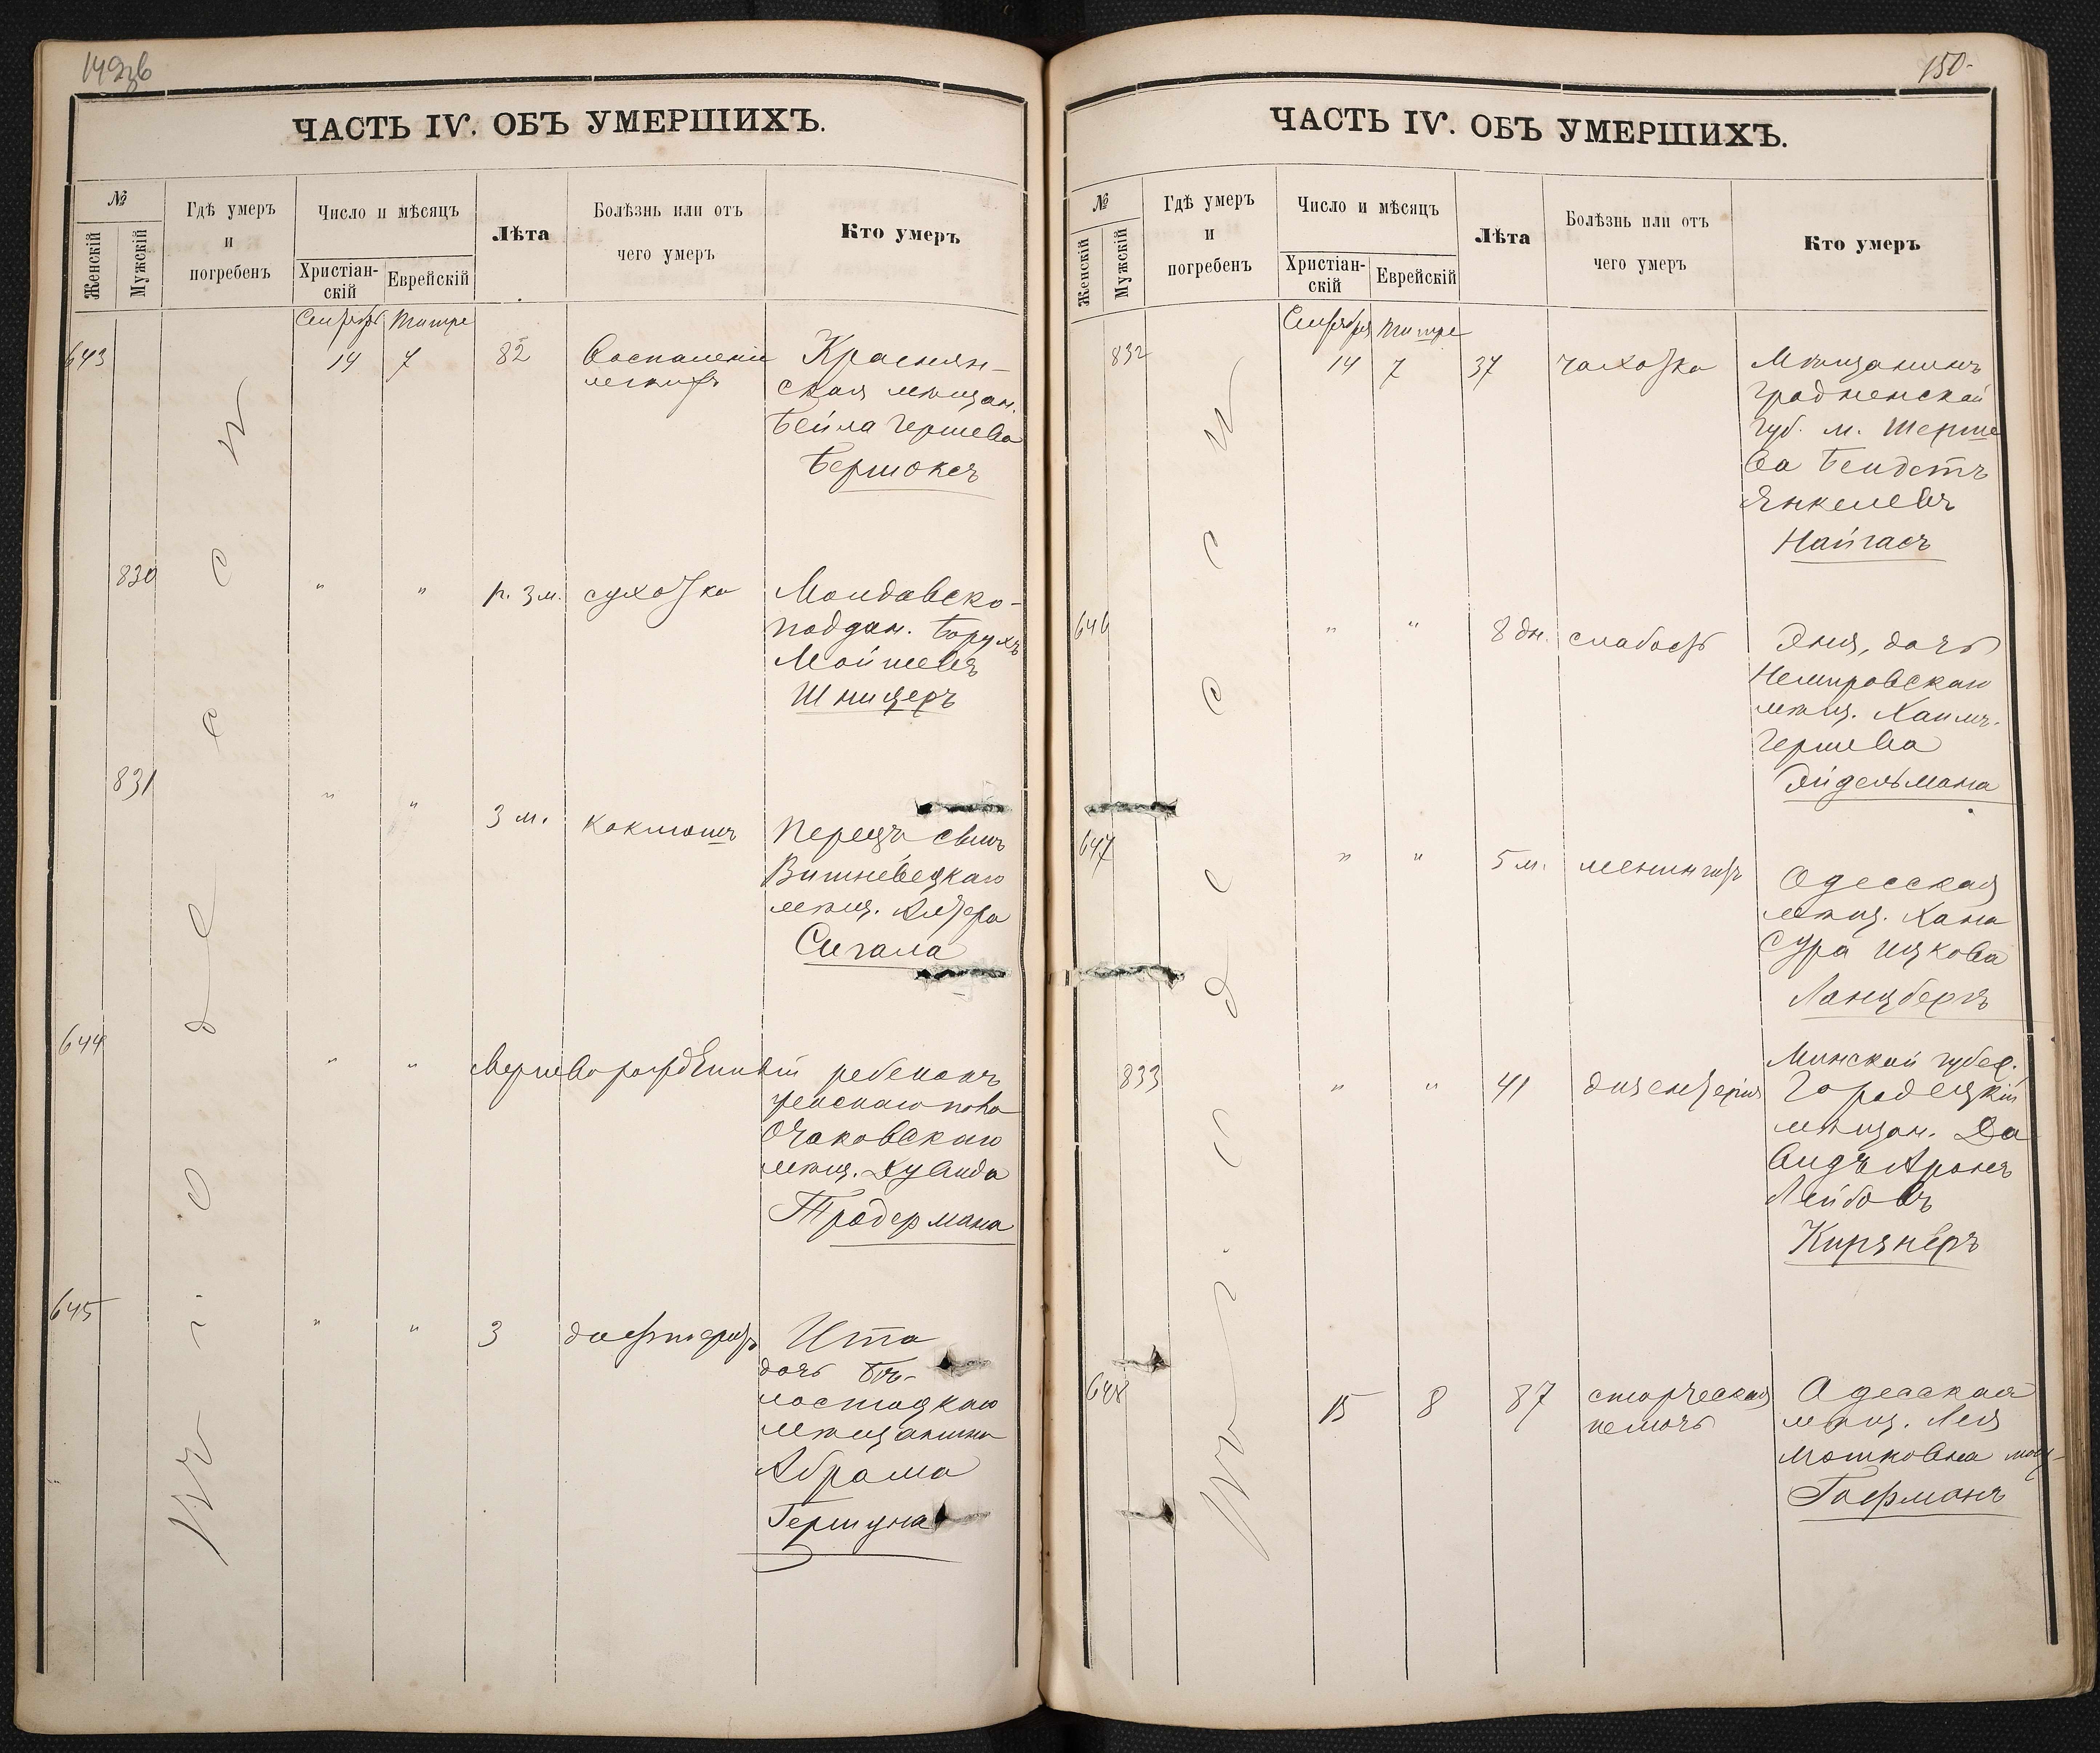 149об
ЧАСТЬ IV. ОБЪ УМЕРШИХЪ.
№
Женскій
Мужскій
Гдѣ умеръ
и
погребенъ
Число и мѣсяцъ
Христіан-
скій
Еврейскій
Лѣта
Болѣзнь или отъ
чего умеръ
Кто умеръ
Сентябрь Тишре
643 14 7 82 Воспаленіе Краснян-
легкихъ ская мѣщан.
Бейла Гершева
830 " " 3 м. сухотка Молдавско-
поддан. Борухъ
Мойшевъ
Шницеръ
831 " " 3 м. коклюшъ Перецъ сынъ
Вишневецкаго
мѣщ. Алтера
Сигала
644 " " Мертворожденный ребенокъ
женскаго пола
Очаковскаго
мѣщ. Дувида
Тродермана
645 " " 3 дифтеритъ Ита
дочь Бѣ-
лостоцкаго
мѣщанина
Абрама
Гершуна
Въ Одессѣ
150.
ЧАСТЬ IV. ОБЪ УМЕРШИХЪ.
№
Женскій
Мужскій
Гдѣ умеръ
и
погребенъ
Число и мѣсяцъ
Христіан-
скій
Еврейскій
Лѣта
Болѣзнь или отъ
чего умеръ
Кто умеръ
Сентября Тишре
832 14 7 37 чахотка Мѣщанинъ
Гродненской
губ. м. Шерше
ва
Янкелевъ
Найгасъ
646 " " 8 дн. слабость Эня, дочь
Немировскаго
мѣщ. Хаима
Гершева
Эйдельмана
647 " " 5 м. менингитъ Одесская
мѣщ. Хана
Сура Ицкова
Ланцбергъ
Минской губер.
833 " " 41 дизентерія Городецкій
мѣщан. Да
видъ Аронъ
Лейбовъ
Кирзнеръ
648 15 8 87 старческая Одесская
немочь мѣщ. Лея
Мошковна
Гофманъ
Въ Одессѣ